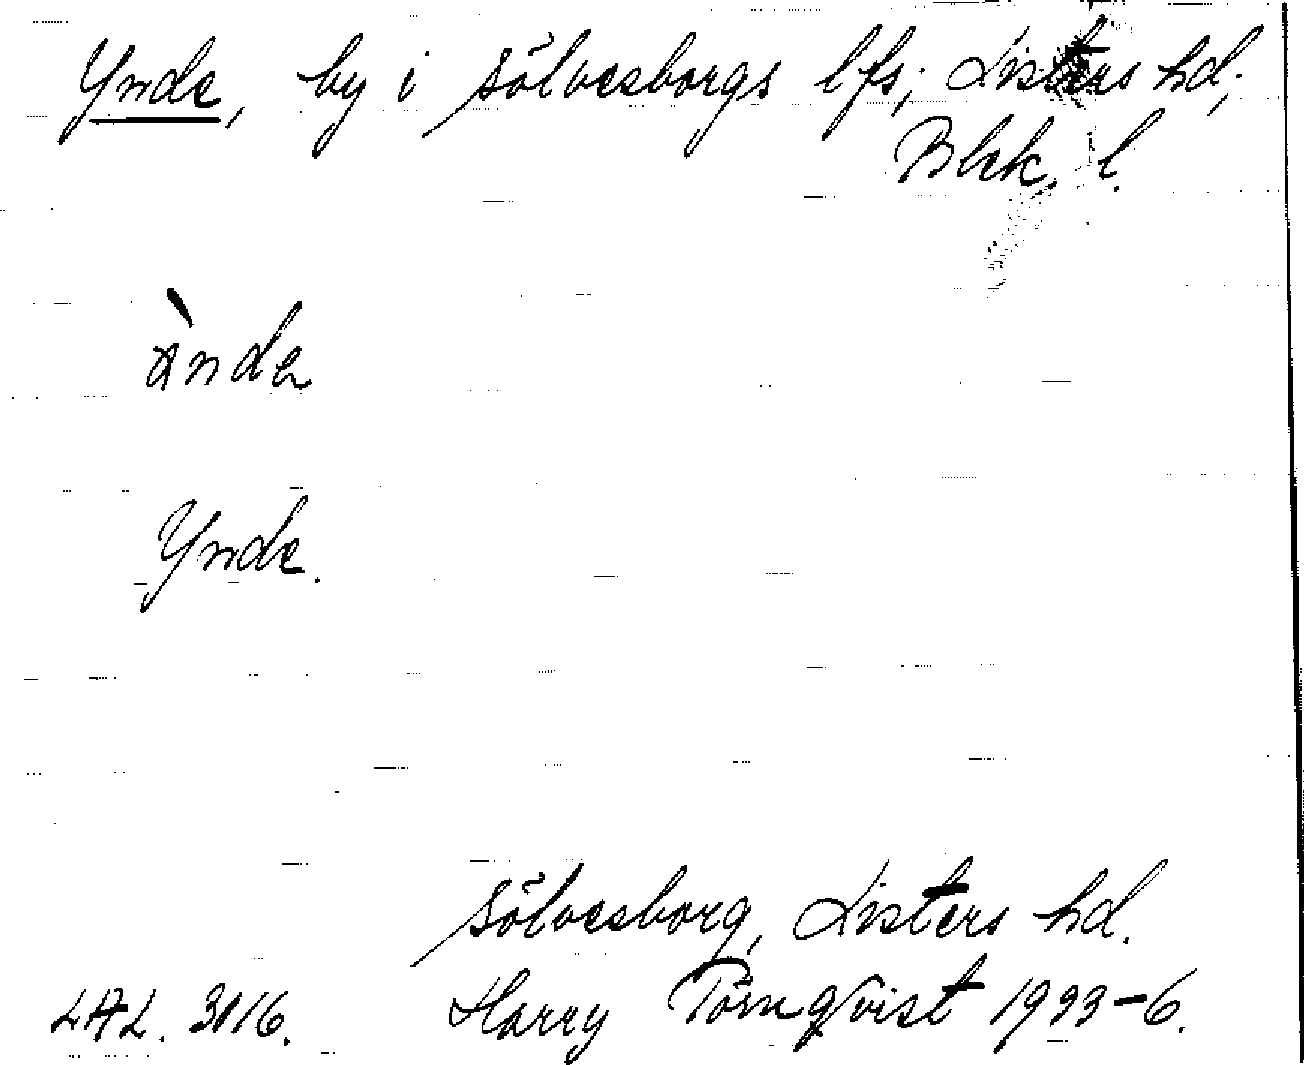 Ynde, by i Sölvesborgs lfs; Listers hd;
Blek. l.
Ynde.
Sölvesborg, Listers hd.
LAL. 3116. Harry Törnqvist 1933-6.